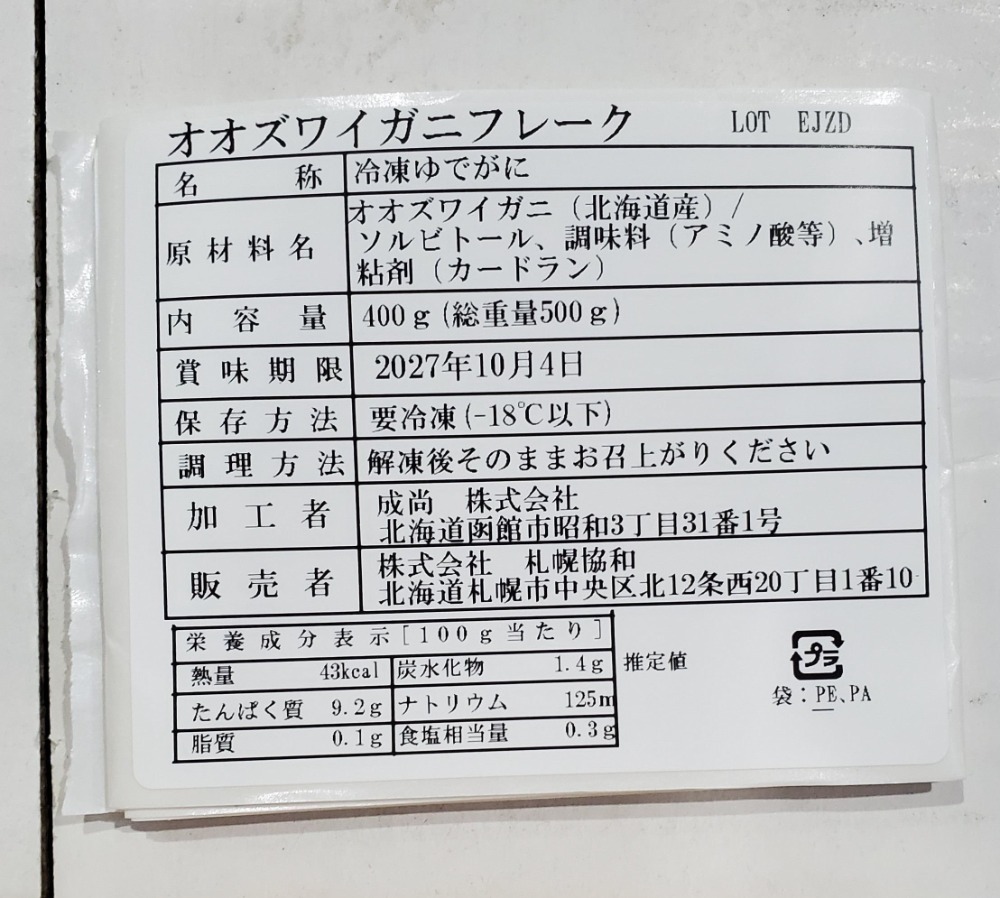 オオズワイガニフレーク LOT EJZD
名称 冷凍ゆでがに
原材料名 オオズワイガニ（北海道産）/
ソルビトール、調味料（アミノ酸等）、増
粘剤（カードラン）
内容量 400g(総重量500g)
賞味期限 2027年10月4日
保存方法 要冷凍(-18℃以下)
調理方法 解凍後そのままお召上がりください
加工者 成尚 株式会社
北海道函館市昭和3丁目31番1号
販売者 株式会社 札幌協和
北海道札幌市中央区北12条西20丁目1番10
栄養成分表示[100g当たり]
熱量 43kcal 炭水化物 1.4g 推定値
たんぱく質 9.2g ナトリウム 125m
脂質 0.1g 食塩相当量 0.3g
プラ
袋：PE、PA